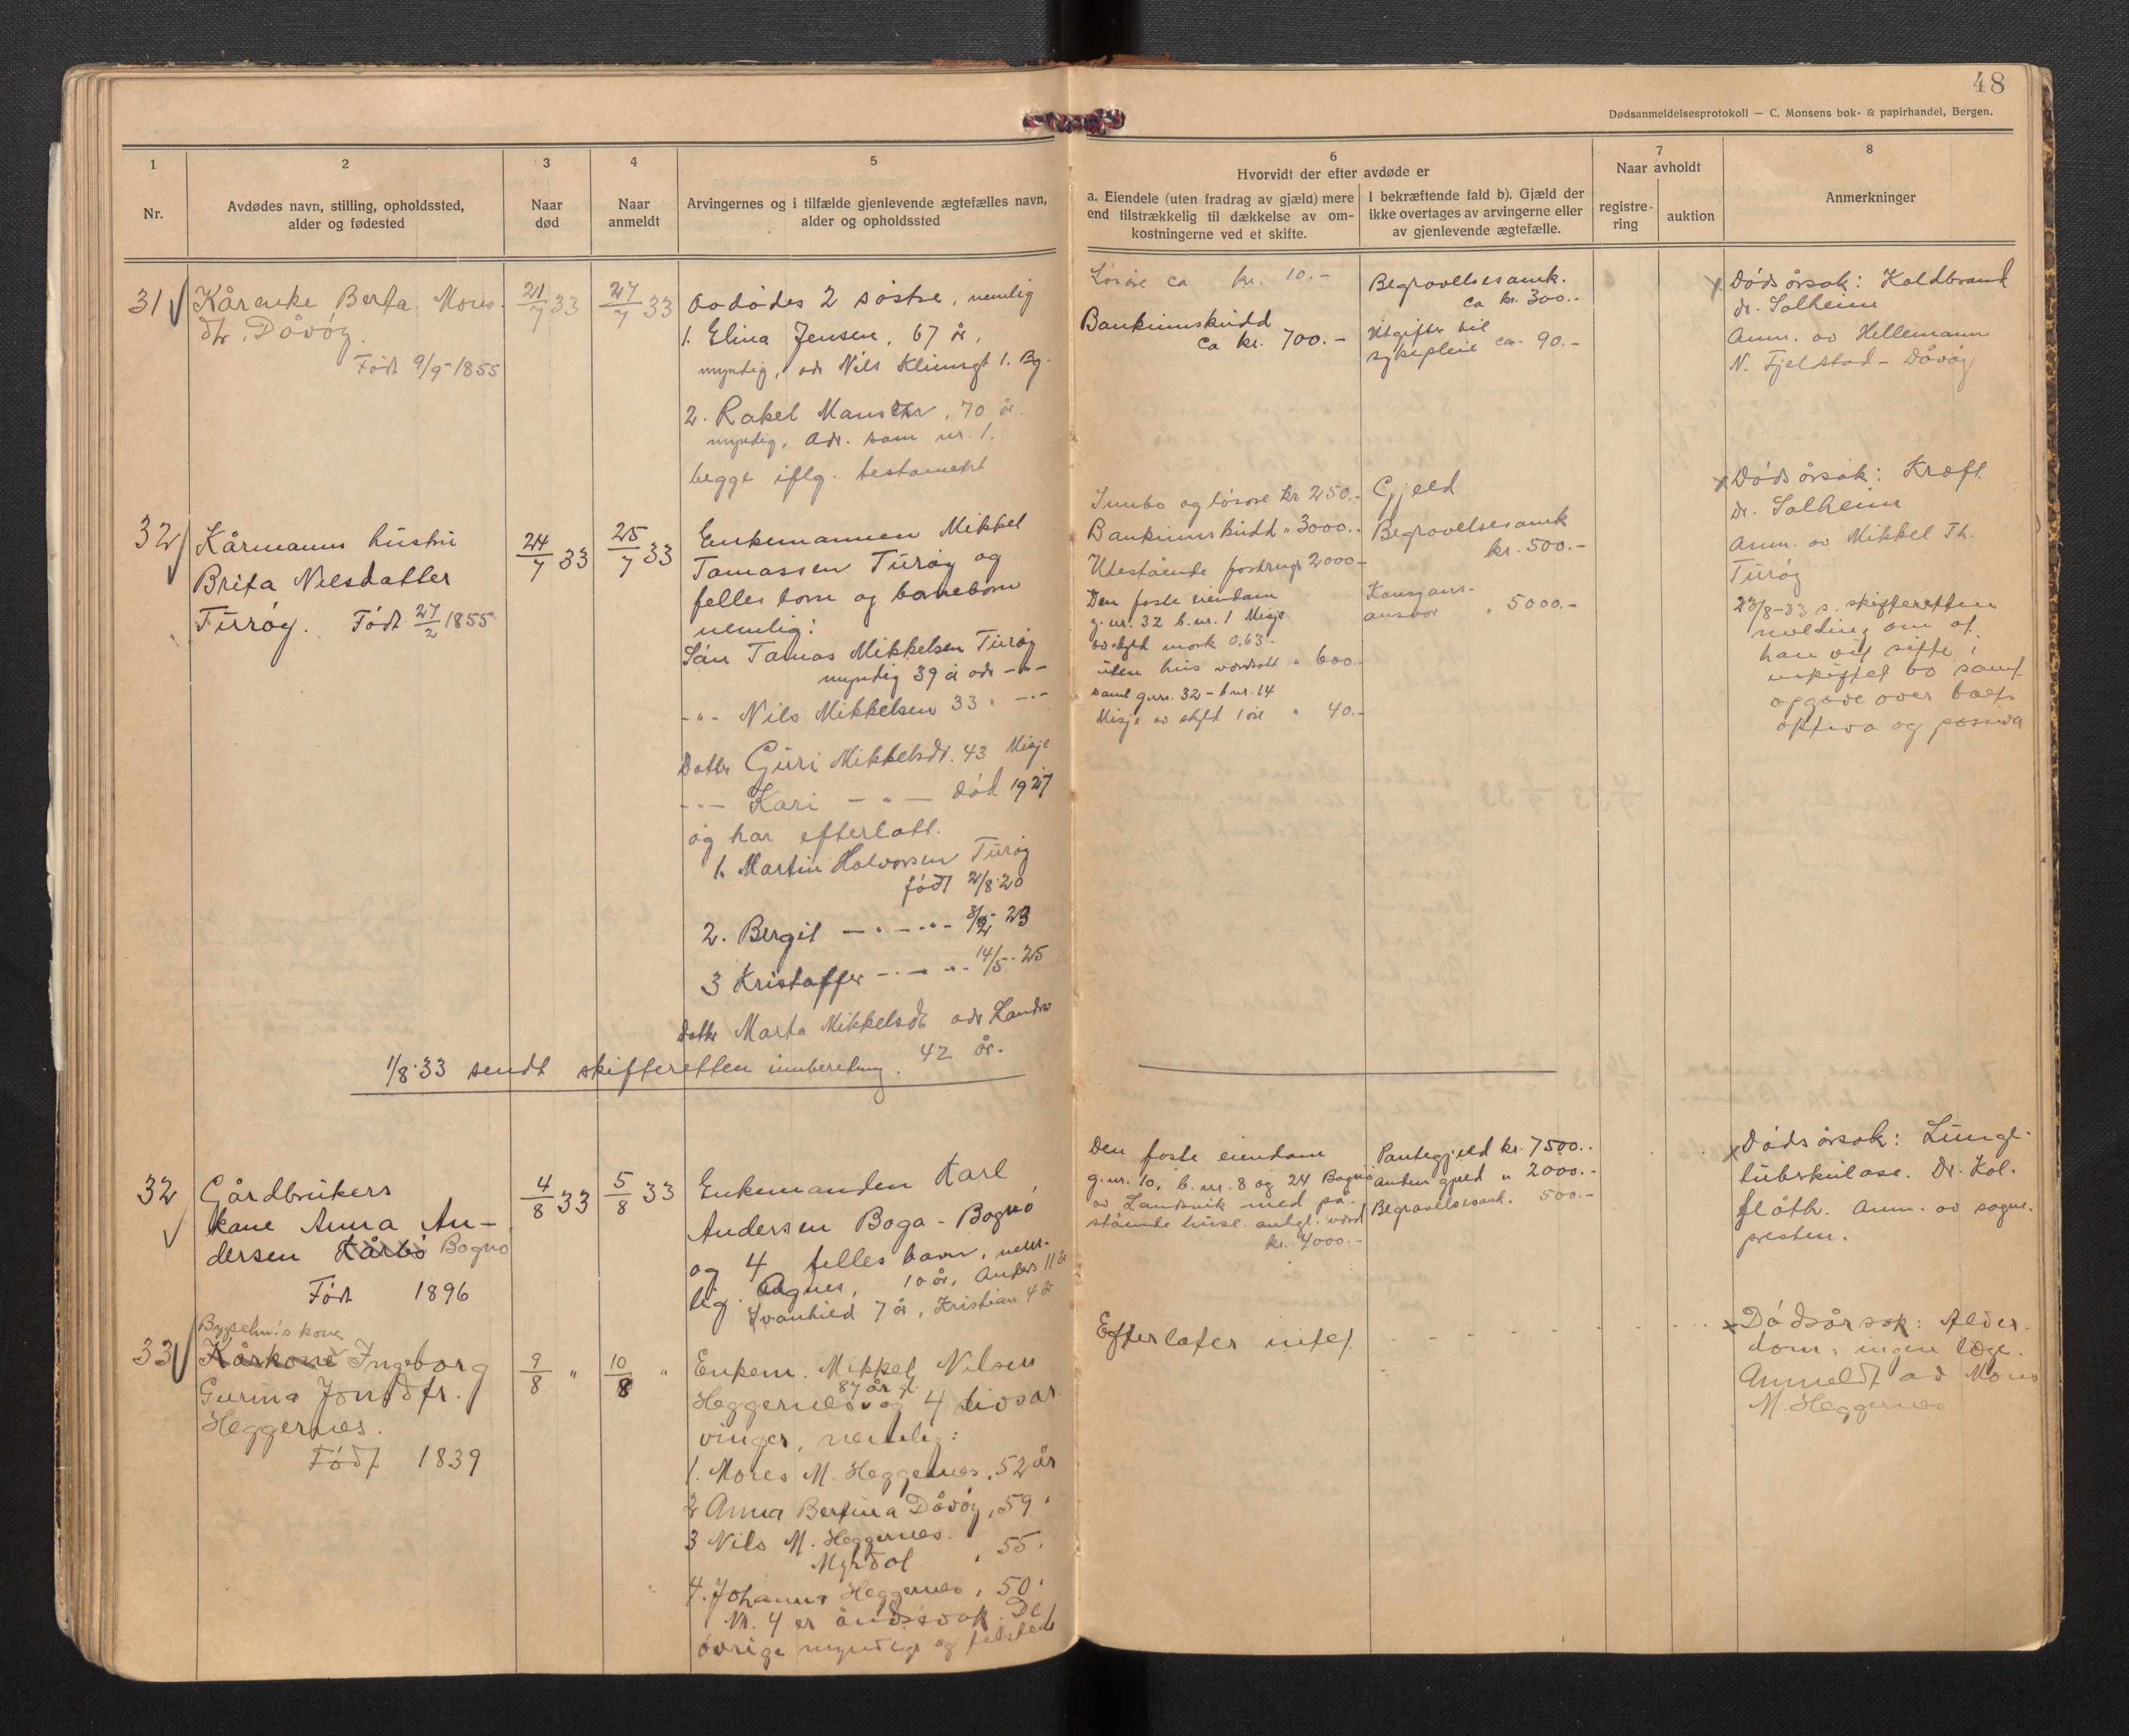 48
Dødsanmeldelsesprotokoll — C. Monsens bok- & papirhandel, Bergen.
1
2
3
4
5
Nr.
Avdødes navn, stilling, opholdssted,
alder og fødested
Naar
død
Naar
anmeldt
Arvingernes og i tilfælde gjenlevende ægtefælles navn,
alder og opholdssted
6
Hvorvidt der efter avdøde er
a. Eiendele (uten fradrag av gjæld) mere
end tilstrækkelig til dækkelse av om-
kostningerne ved et skifte.
I bekræftende fald b). Gjæld der
ikke overtages av arvingerne eller
av gjenlevende ægtefælle.
7
Naar avholdt
registre-
ring
auktion
8
Anmerkninger
31
Kårenke Berta Mons-
dtr. Dåvøy
Født 9/9-1855
21/7 33
27/7 33
avdødes 2 søstre, nemlig
1. Elina Jensen, 67 år,
myndig, adr Nils Klimsgt 1. Bg.
2. Rakel Mansdtr, 70 år.
myndig, adr. som nr. 1.
begge iflg. testament
Løsøre ca kr. 10.-
Bankinnskudd
ca kr. 700.-
Begravelsesomk.
ca kr. 300.-
Utgifter til
sykepleie ca. 90.-
x Dødsårsak: Koldbrand
dr. Solheim
Anm. av Hellemann
N. Fjeldstad - Dåvøy
32
Kårmanns hustru
Brita Nilsdatter
Turøy. Født 27/2 1855
24/7 33
25/7 33
Enkemannen Mikkel
Tomassen Turøy og
felles born og barneborn
nemlig:
Søn Tomas Mikkelsen Turøy
myndig 39 å adr -"-
-"- Nils Mikkelsen 33 " -"-
Datter Guri Mikkelsdr. 43 Misje
-"- Kari -"- død 1927
og har efterlatt.
1. Martin Halvorsen Turøy
født 21/8-20
2. Bergit -"- -"- 23
3 Kristoffer -"- -"- 14/5-25
datter Marta Mikkelsdt adr Landro
42 år.
1/8-33 sendt skifteretten innberetning.
Innbo og løsøre kr 250.-
Bankinnskudd " 3000.-
Utestående fordringr 2000-
Den faste eiendom
g.nr. 32 b.nr. 1 Misje
av skyld mark 0.63-
uten hus verdsatt " 600.-
samt gnr. 32 - bnr. 14
Misje av skyld 1 øre " 40.-
Gjeld
Begravelsesomk
kr. 500.-
Kausjons-
ansvar " 5000.-
x Dødsårsak: Kræft
dr. Solheim
Anm. av Mikkel Th.
Turøy
23/8-33 s. skifteretten
melding om at
han vil sitte i
uskiftet bo samt
opgave over boets
aktiva og passiva
32
Gårdbrukers
kone Anna An-
dersen Kårbø Bogno
Født 1896
4/8 33
5/8 33
Enkemanden Karl
Andersen Boga - Bognø
og 4 felles barn, nem-
lig. Agnes, 10 år, Anders 11 år
Svanhild 7 år, Kristian 4 år
Den faste eiendom
g.nr. 10, b.nr. 8 og 24 Bognø
av Landsvik med på-
stående huse. antgl. værd
kr. 4000.-
Pantegjeld kr. 7500.-
Anden gjeld " 2000.-
Begravelsesomk. 500.-
x Dødsårsak: Lunge-
tuberkulose. Dr. Kol-
flåth. Anm. av sogne-
presten.
33
Bygselm.'s kone
Kårkone Ingeborg
Gurina Jonsdtr.
Heggernes.
Født 1839
9/8 "
10/8 "
Enkem. Mikkel Nilsen
87 år
Heggernes og 4 livsar-
vinger, nemlig:
1. Mons M. Heggernes, 52 år
2 Anna Bertina Dåvøy, 59 "
3 Nils M. Heggernes.
Myrdal " 55 "
4. Johannes Heggernes, 50 "
Nr. 4 er åndssvak. De
øvrige myndige og tilstede
Efterlater intet
x Dødsårsak: Alder-
dom, ingen læge.
Anmeldt av Mons
M. Heggernes